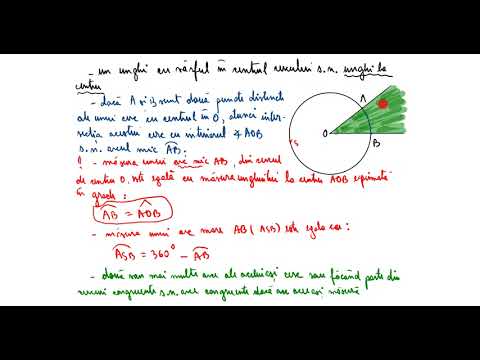 - un unghi cu vârful în centrul cercului s.n. unghi la
centru
- dacă A și B sunt două puncte distincte
ale unui cerc cu centrul în O, atunci inter-
secția acestui cerc cu interiorul ∢ AOB
s.n. arcul mic AB.
! - măsura unui arc mic AB, din cercul
de centru O este egală cu măsura unghiului la centru AOB exprimată
în grade:
AB = AOB
- măsura unui arc mare AB (ASB) este egală cu:
ASB = 360° - AB
- două sau mai multe arce ale aceluiași cerc sau făcând parte din
cercuri congruente s.n. arce congruente dacă au aceeași măsură
A
O
B
S